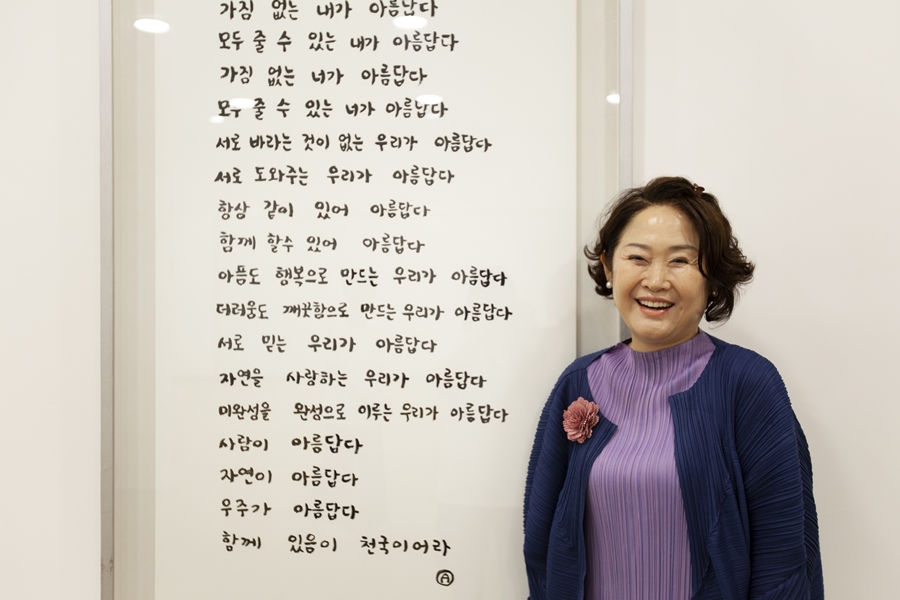 가짐 없는 내가 아름답다
모두 줄 수 있는 내가 아름답다
가짐 없는 너가 아름답다
모두 줄 수 있는 너가 아름답다
서로 바라는 것이 없는 우리가 아름답다
서로 도와주는 우리가 아름답다
항상 같이 있어 아름답다
함께 할수 있어 아름답다
아픔도 행복으로 만드는 우리가 아름답다
더러움도 깨끗함으로 만드는 우리가 아름답다
서로 믿는 우리가 아름답다
자연을 사랑하는 우리가 아름답다
미완성을 완성으로 이루는 우리가 아름답다
사람이 아름답다
자연이 아름답다
우주가 아름답다
함께 있음이 천국이어라
A